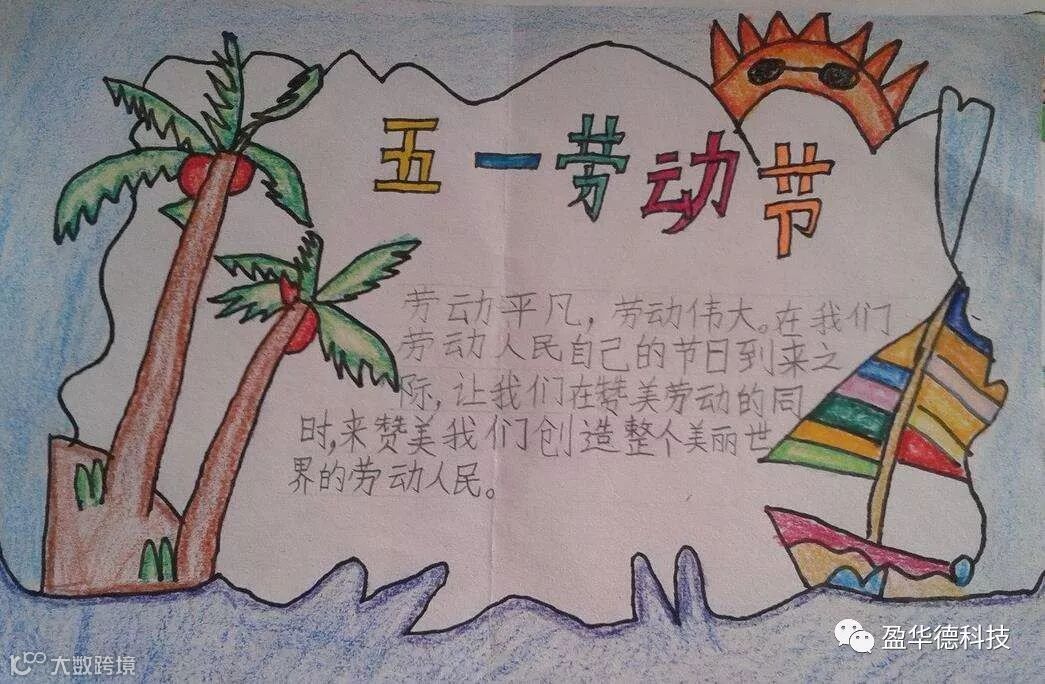 五一劳动节
劳动平凡，劳动伟大。在我们
劳动人民自己的节日到来之
际，让我们在赞美劳动的同
时，来赞美我们创造整个美丽世
界的劳动人民。
盈华德科技
大数跨境